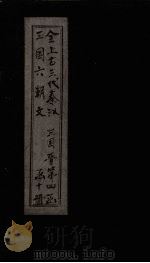 全上古三代秦汉
三國六朝文
三囯晋第四函
函十冊